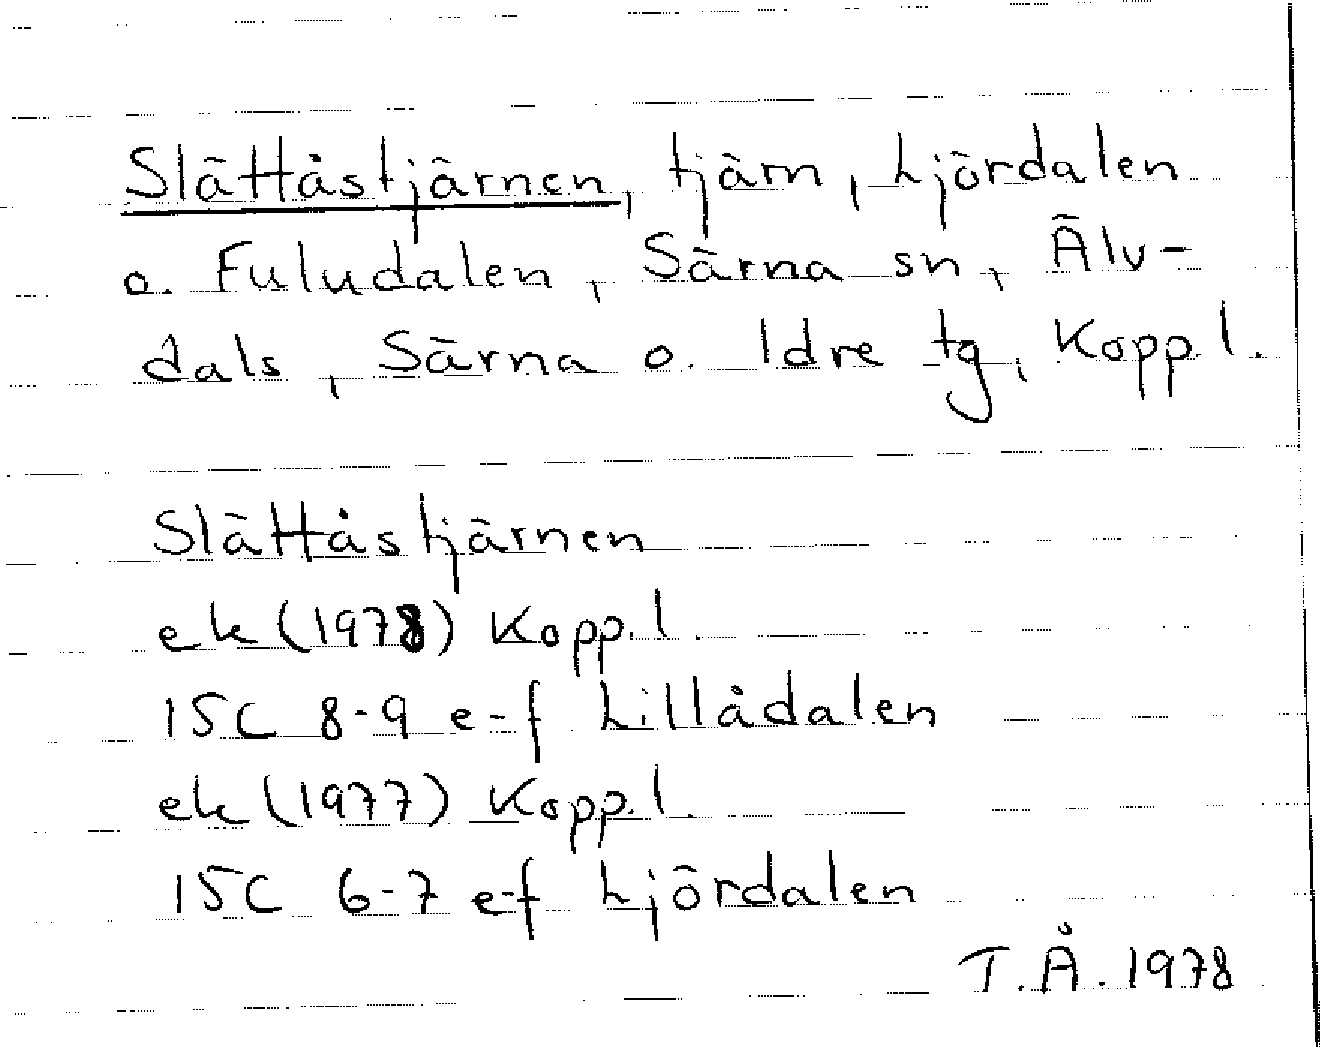 Slättåstjärnen, tjärn, Ljördalen
o. Fuludalen, Särna sn, Älv-
dals, Särna o. Idre tg, Kopp.l.
Slättåstjärnen
ek (1978) Kopp.l.
15C 8-9 e-f Lillådalen
ek (1977) Kopp.l.
15C 6-7 e-f Ljördalen
T.Å. 1978